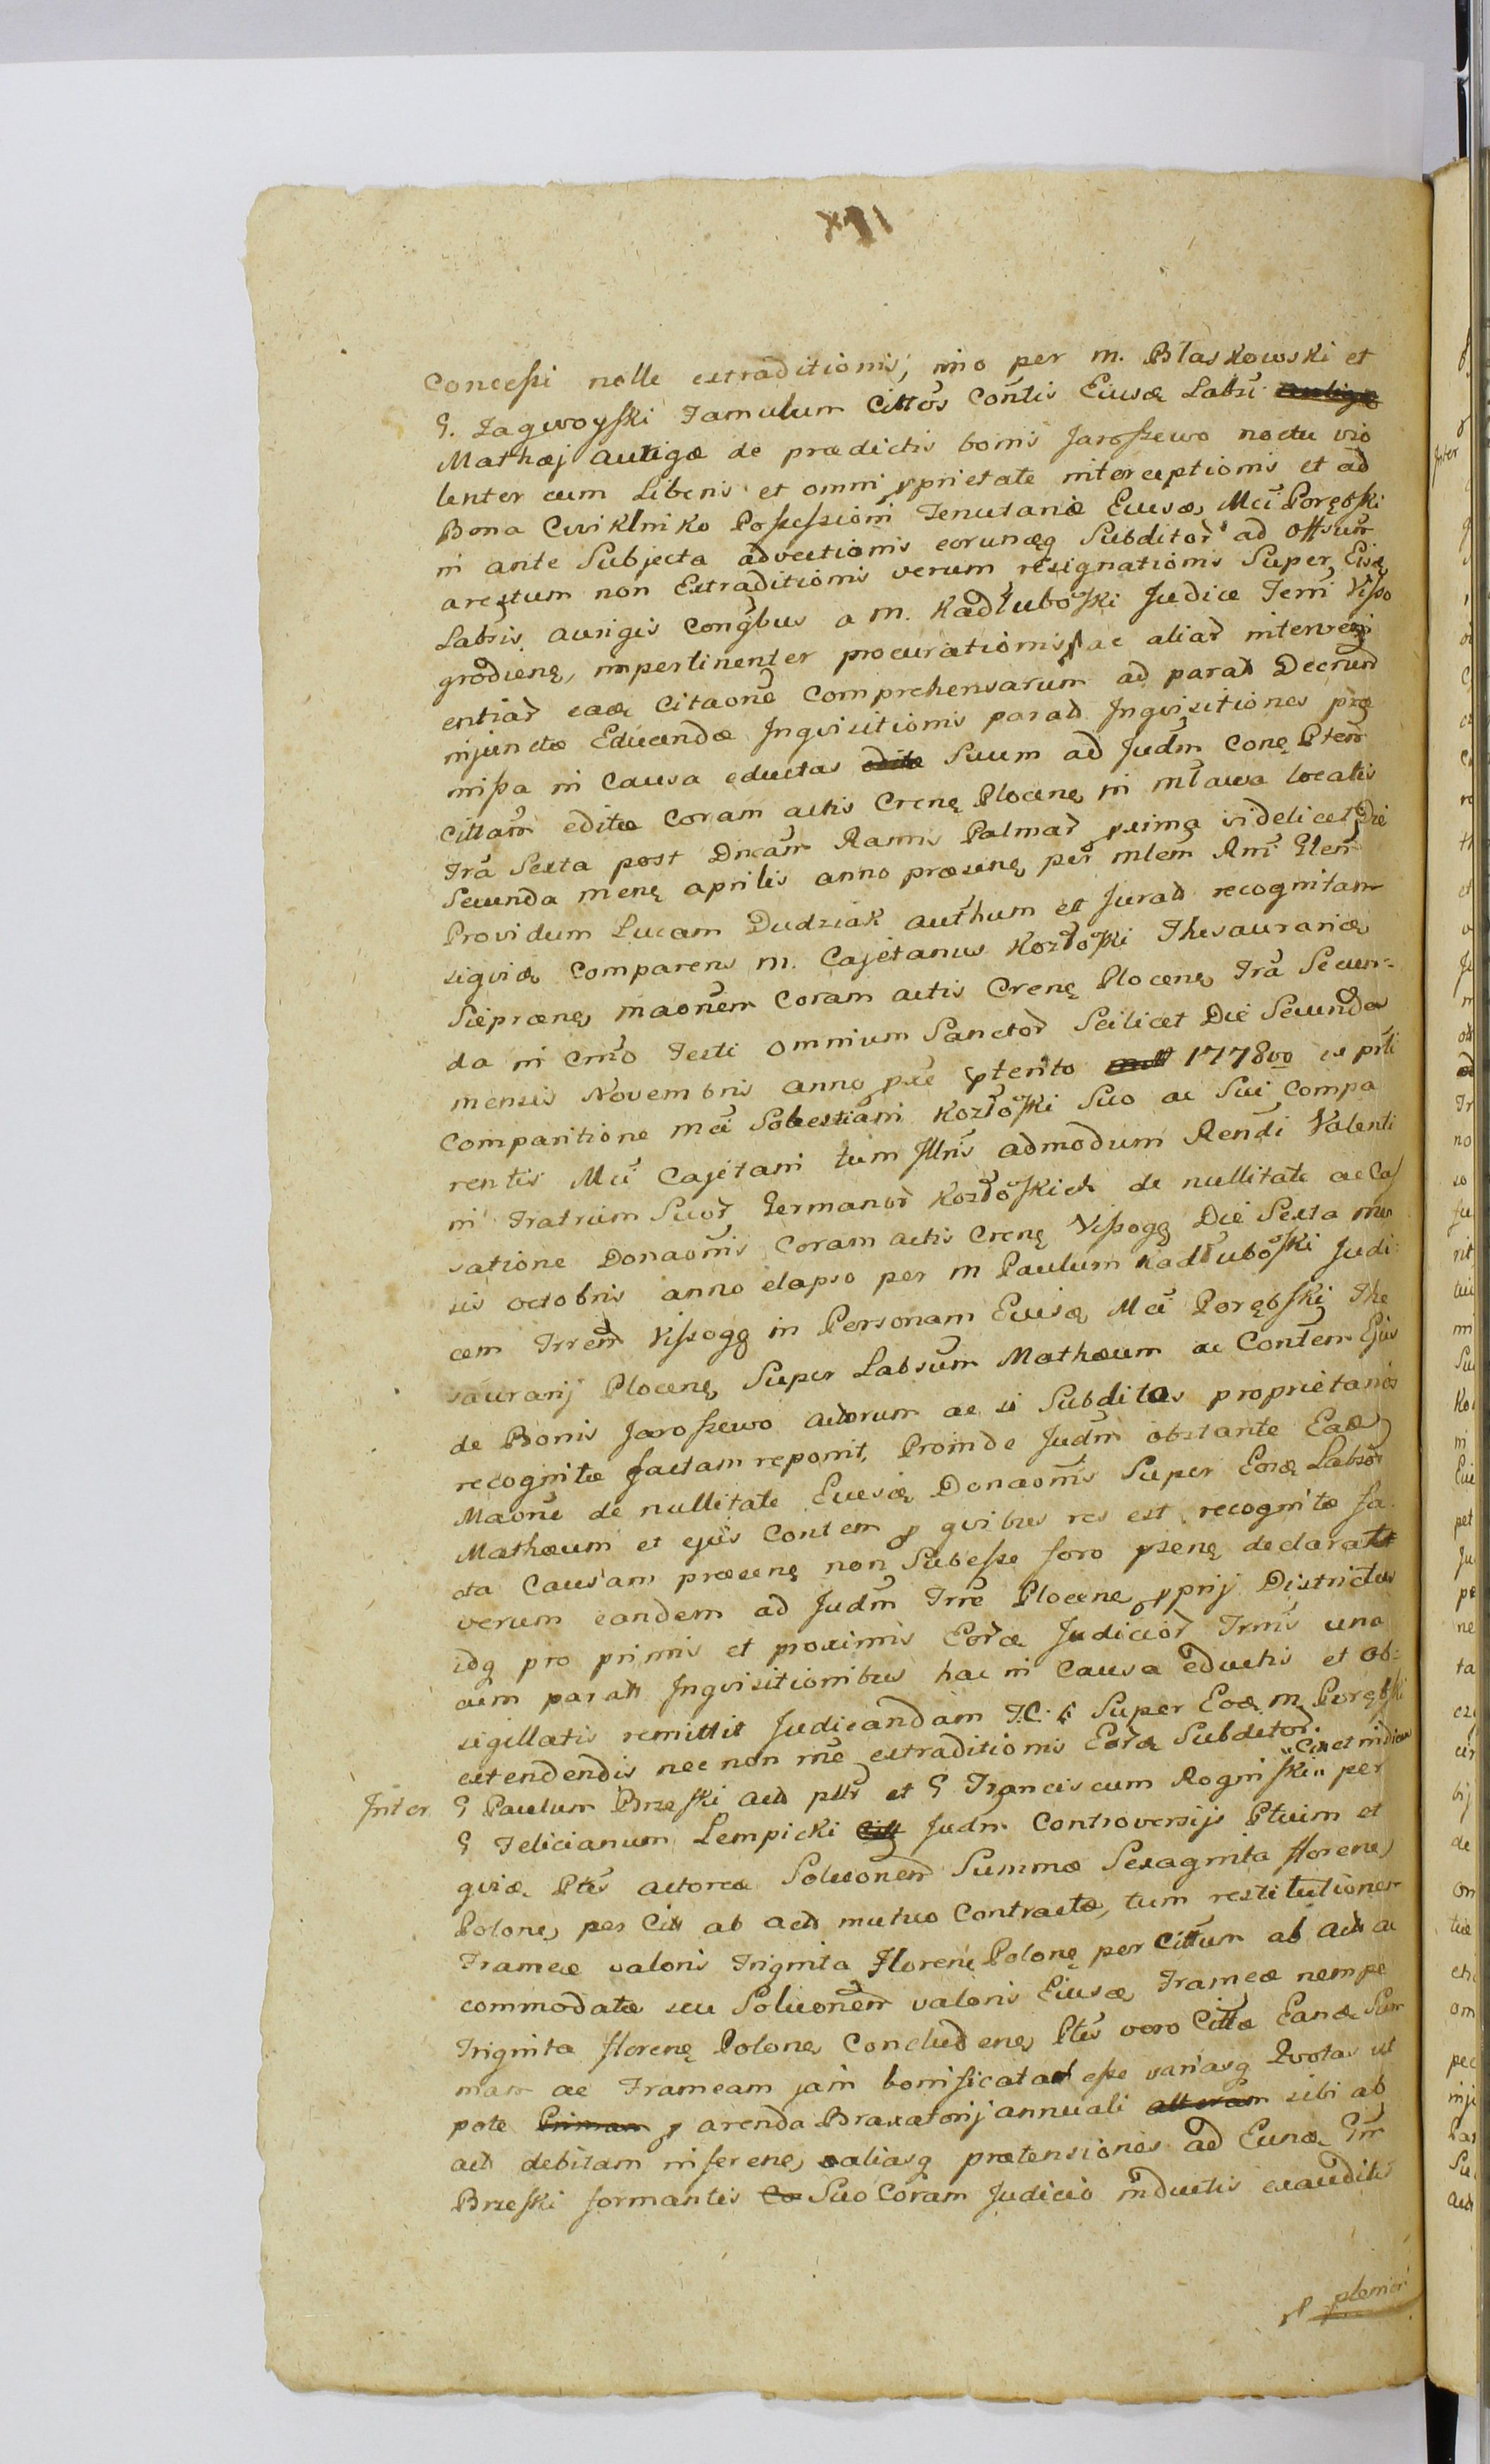 XII
concessi nolle extraditionis, imo per m. Blaskowski et
G. Zagwoyski Famulum Cittos Contis Eiusd Labri aurigæ
Mathæj aurigæ de prædictis bonis Jaroszewo noctu vio
lenter cum Liberis et omni pprietate interceptionis et ad
Bona Cwiklniko Possessioni Tenutariæ Eiusd Mci Porębski
in ante Subjecta advectionis eorundq Subditor ad Offsum
arestum non Extraditionis verum resignationis Super Eisd
Labris aurigis Congbus a m. Kadłuboski Judice Terri Visso
grodienę, impertinenter procurationis, ac aliar interveni
entiar ead Citaone Comprehensarum ad parat Decrund
injunctæ Educendæ Inqvisitionis parad Inqvisitiones præ
missa in Causa eductas edita Suum ad Judm Conę Ptem
cittam editæ coram actis Crenę Plocenę in mława locatis
Fra Sexta post Dncam Ramis Palmar pxima videlicet Die
Secunda menę aprilis anno præsenę per mlem Rni Glem
Providum Lucam Dudziak authum et Jurad recognitam
siqvid Comparens m. Cajetanus Kozłoski Thesaurariæ
Sieprcenę, maonem Coram actis Crenę Plocenę Fra Secun-
da in Cmo Festi Omnium Sanctor Scilicet Die Secunda
mensis Novembris anno pxe pterito 1778vo ex prli
Comparitione mci Sobestiani Kozłoski Suo ac Sui Compa
rentis Mci Cajetani tum Jllris admodum Rendi Valenti
ni Fratrum Suor Germanor Kozłoskich de nullitate ac Cas
satione Donaonis coram actis Crenę Vissogę Die Sexta men
sis octobris anno elapso per m Paulum Kadłuboski Judi
cem Trrem Vissogę in Personam Eiusd Mci Porębski The
saurarij Plocenę, Super Labsum Mathæum ac Contem Ejus
de Bonis Jaroszewo actorum ac si Subditos proprietarios
recognitæ factam reponit, Proinde Judm obstante Ead
Maone de nullitate Eiusd Donaonis Super Eosd Labros
Mathæum et ejus Contem p qvibus res est recognitæ fa
cta Causam præsenę non Subesse foro psenę declarat
verum eandem ad Judm Trre Plocene pprij Districtus
idq pro primis et proximis Eord Judicior Trris una
cum parat Inqvisitionibus hac in Causa eductis et ob=
sigillatis remittit Judicandam T.C. Super Eod m. Porębski
extendendis nec non rne extraditionis Eord Subditor.
Inter G Paulum Brzeski act pltr et G Franciscum Rogiński "Citt et nidica" per
G Felicianum Lempicki Citt Judm Controversijs Ptuim et
qvid Ptes actoreæ Soluonem Summæ Sexaginta florenę
Polonę, per Citt ab act mutuo Contractæ, tum restitutionem
Frameæ valoris Triginta Florenę Polonę per Cittum ab act ac
commodatæ seu Soluonem valoris Eiusd Frameæ nempe
Triginta florenę Polonę, Concludenę, Ptes vero Cittæ Eand Sum
mam ac Frameam jam bonificatam esse variasq Qvotas ut
pote Primam p arenda Braxatorij annuali alteram sibi ab
act debitam inferenę, aliasq prætensiones ad Eund Gm
Brzeski formantis Co Suo Coram Judicio inductis exauditis
plenior